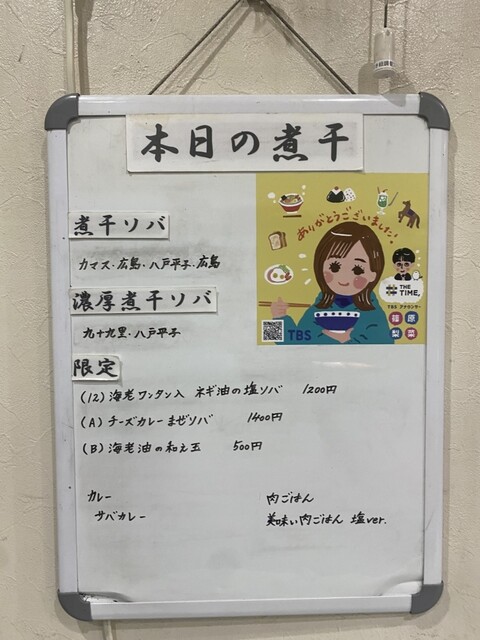 本日の煮干
煮干ソバ
カマス・広島・八戸平子・広島
濃厚煮干ソバ
九十九里・八戸平子
限定
(12) 海老ワンタン入 ネギ油の塩ソバ 1200円
(A) チーズカレーまぜソバ 1400円
(B) 海老油の和え玉 500円
カレー
サバカレー
肉ごはん
美味い肉ごはん 塩ver.
ありがとうございました!
THE TIME,
TBS アナウンサー
篠原
梨菜
TBS